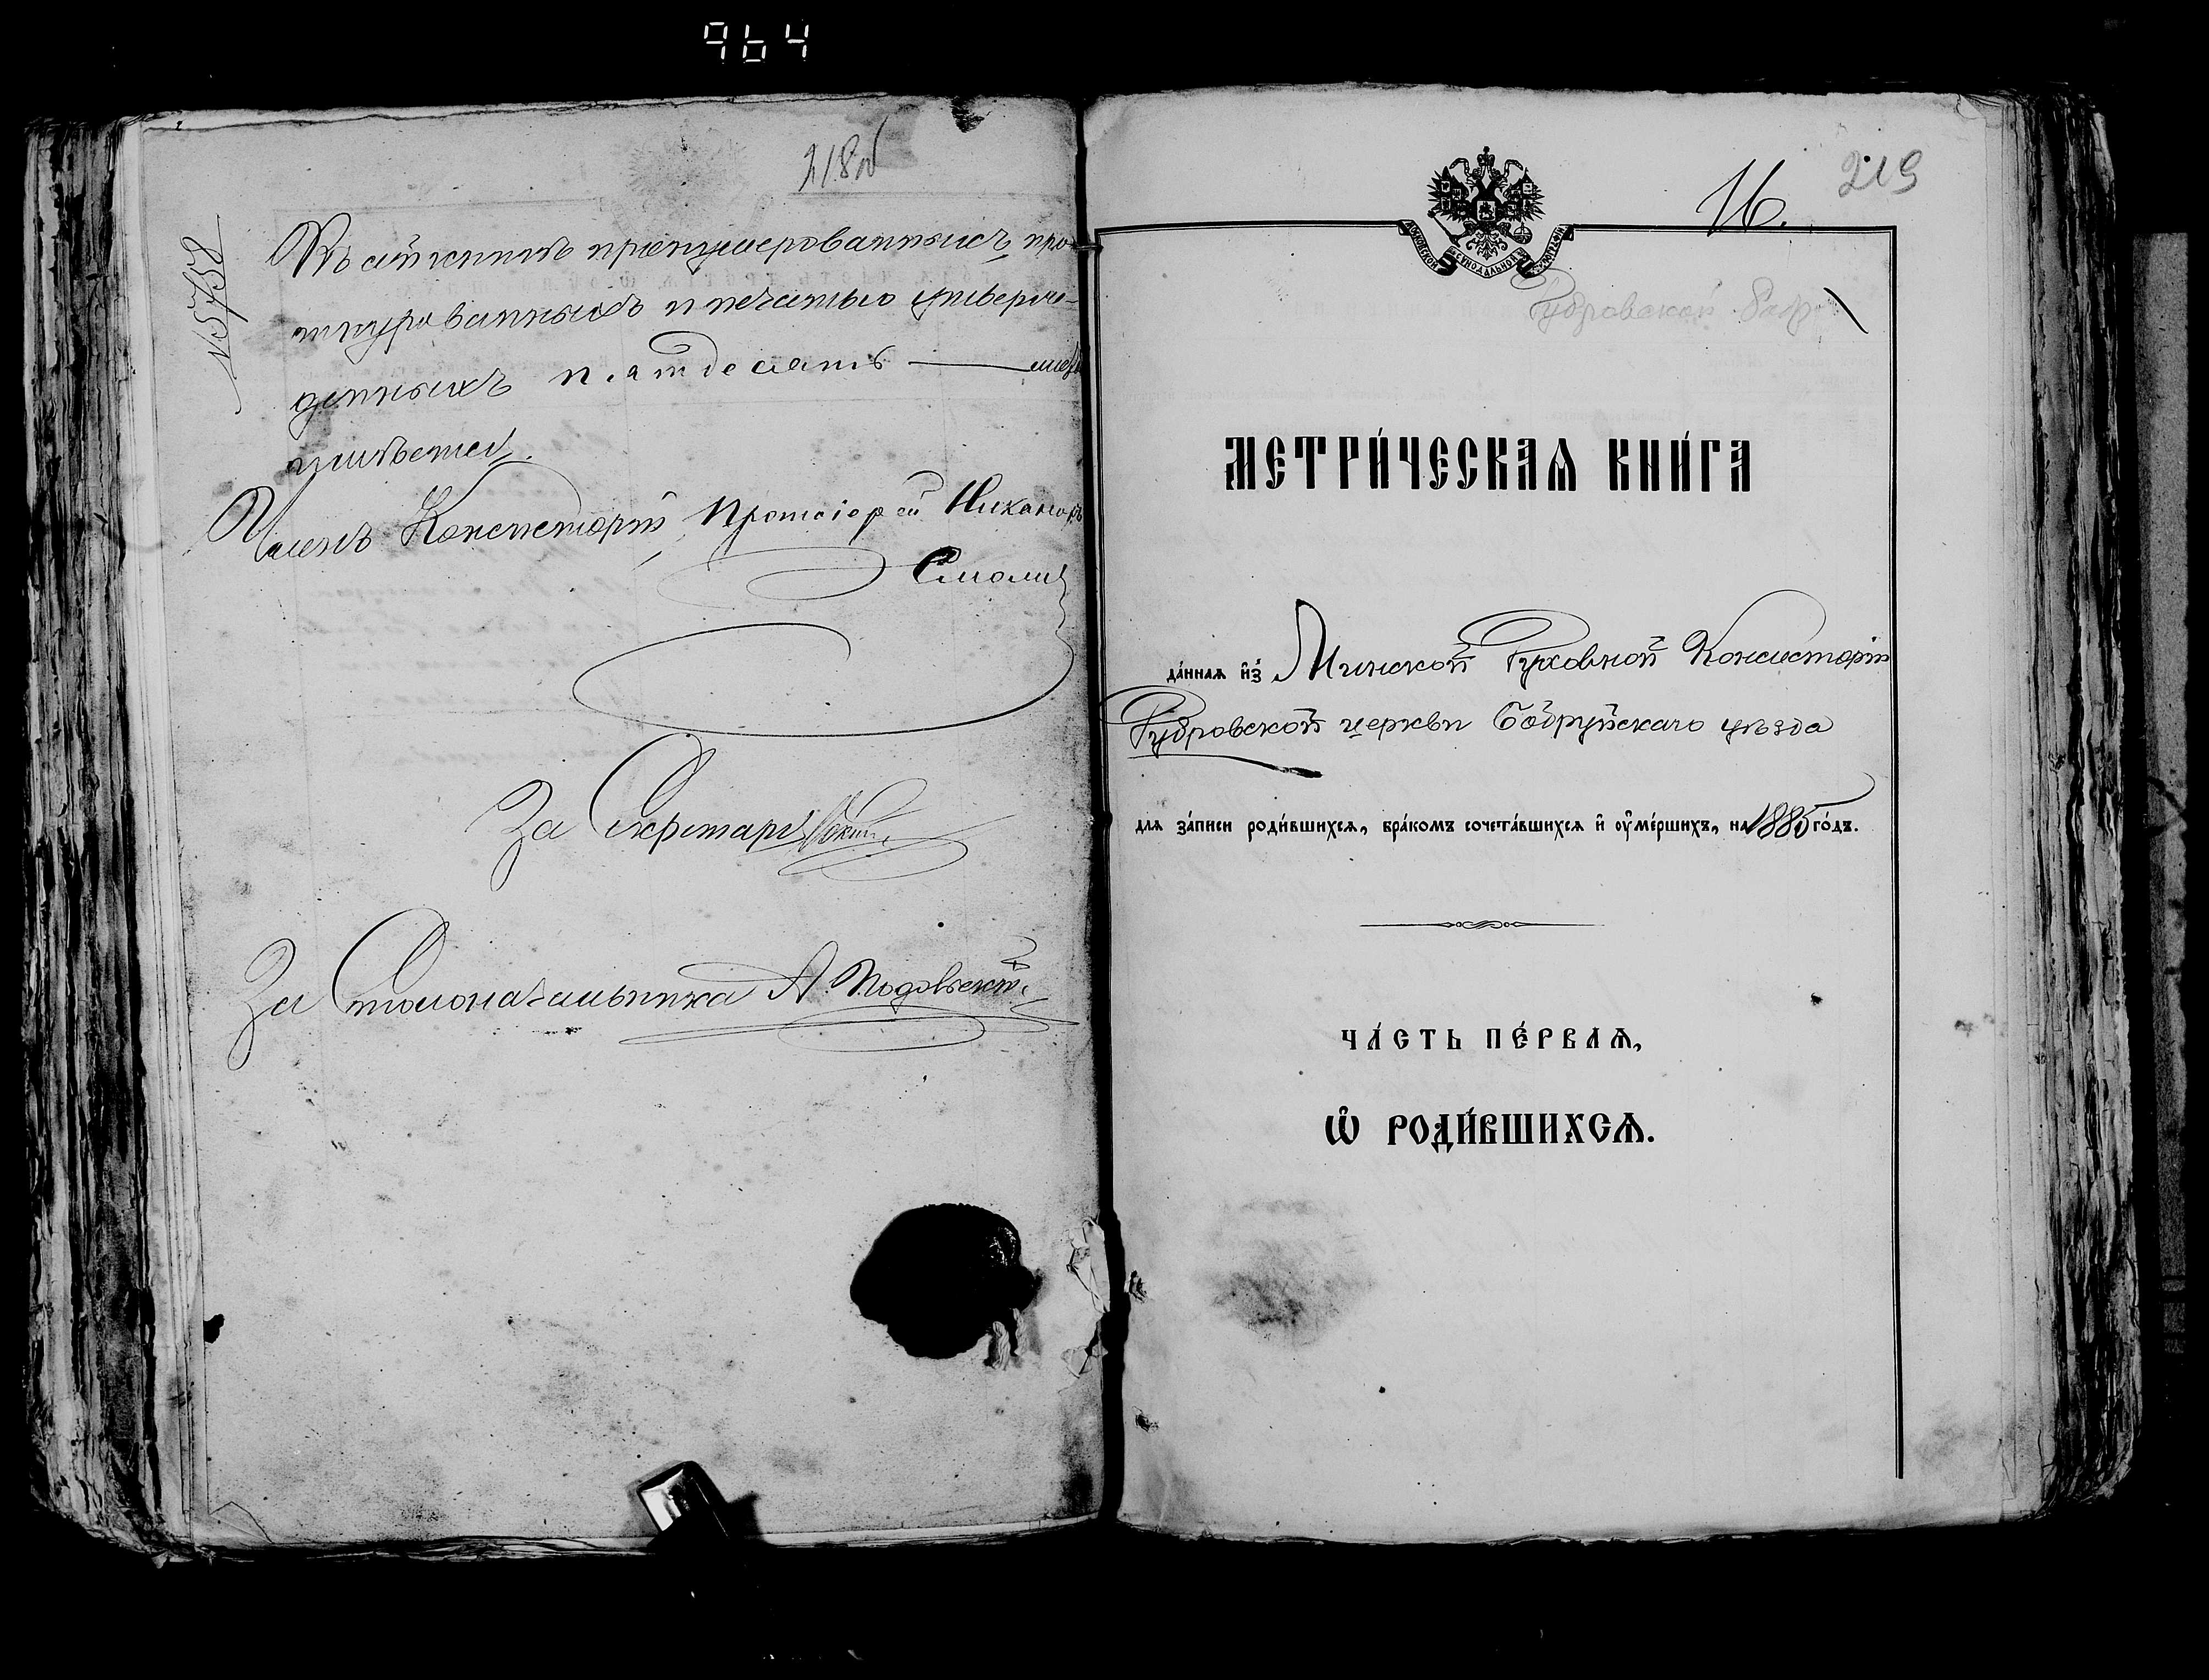 964
218об
№5738
Въ сей книгѣ пронумерованныхъ, про-
шнурованныхъ и печатью утверж-
денныхъ пятдесятъ листовъ
имѣется.
Членъ Консисторіи Протоіерей Никаноръ
Смоличъ
За Секретаря
За Столоначальника А.
219
16.
МОСКОВСКОЙ СѴНОДАЛЬНОЙ ТИПОГРАФІИ
Дубровской Бобр
МЕТРИ́ЧЕСКАѦ КНИ́ГА
да́ннаѧ и҆з̾ Минской Духовной Консисторіи
Дубровской церкви Бобруйскаго уѣзда
длѧ за́писи роди́вшихсѧ, бра́комъ сочета́вшихсѧ и҆ ᲂу҆ме́ршихъ, на 1885 го́дъ.
ЧА́СТЬ ПЕ́РВАѦ,
Ѽ РОДИ́ВШИХСѦ.